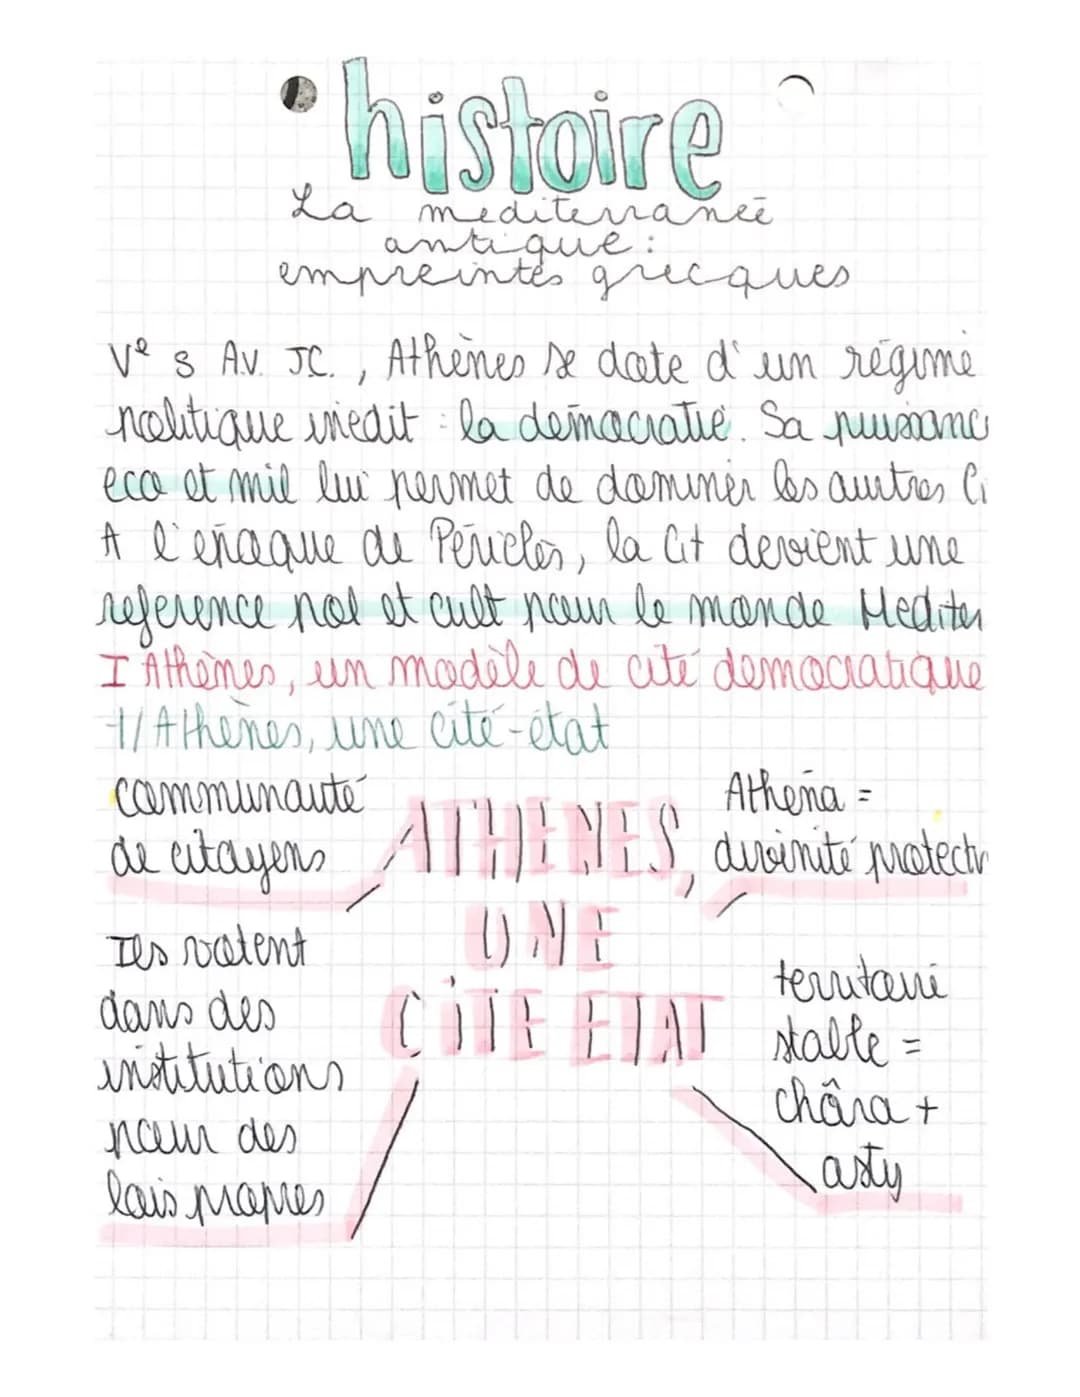 histoire
La mediterranée
antique :
empreintes grecques
Ve s Av. JC., Athènes se dote d'un régime
politique inedit : la démocratie. Sa puissanc
eco et mil lui permet de dominer les autres Ci
A l'époque de Périclès, la Cit devient une
reference pol et cult pour le monde Mediter
I Athènes, un modèle de cité democratique
1/ Athènes, une cité-état
communauté
de citoyens
ATHENES,
UNE
CITE ETAT
Athéna =
divinité protectr
Ils votent
dans des
institutions
pour des
lois propres
territoire
stable =
chôra +
asty